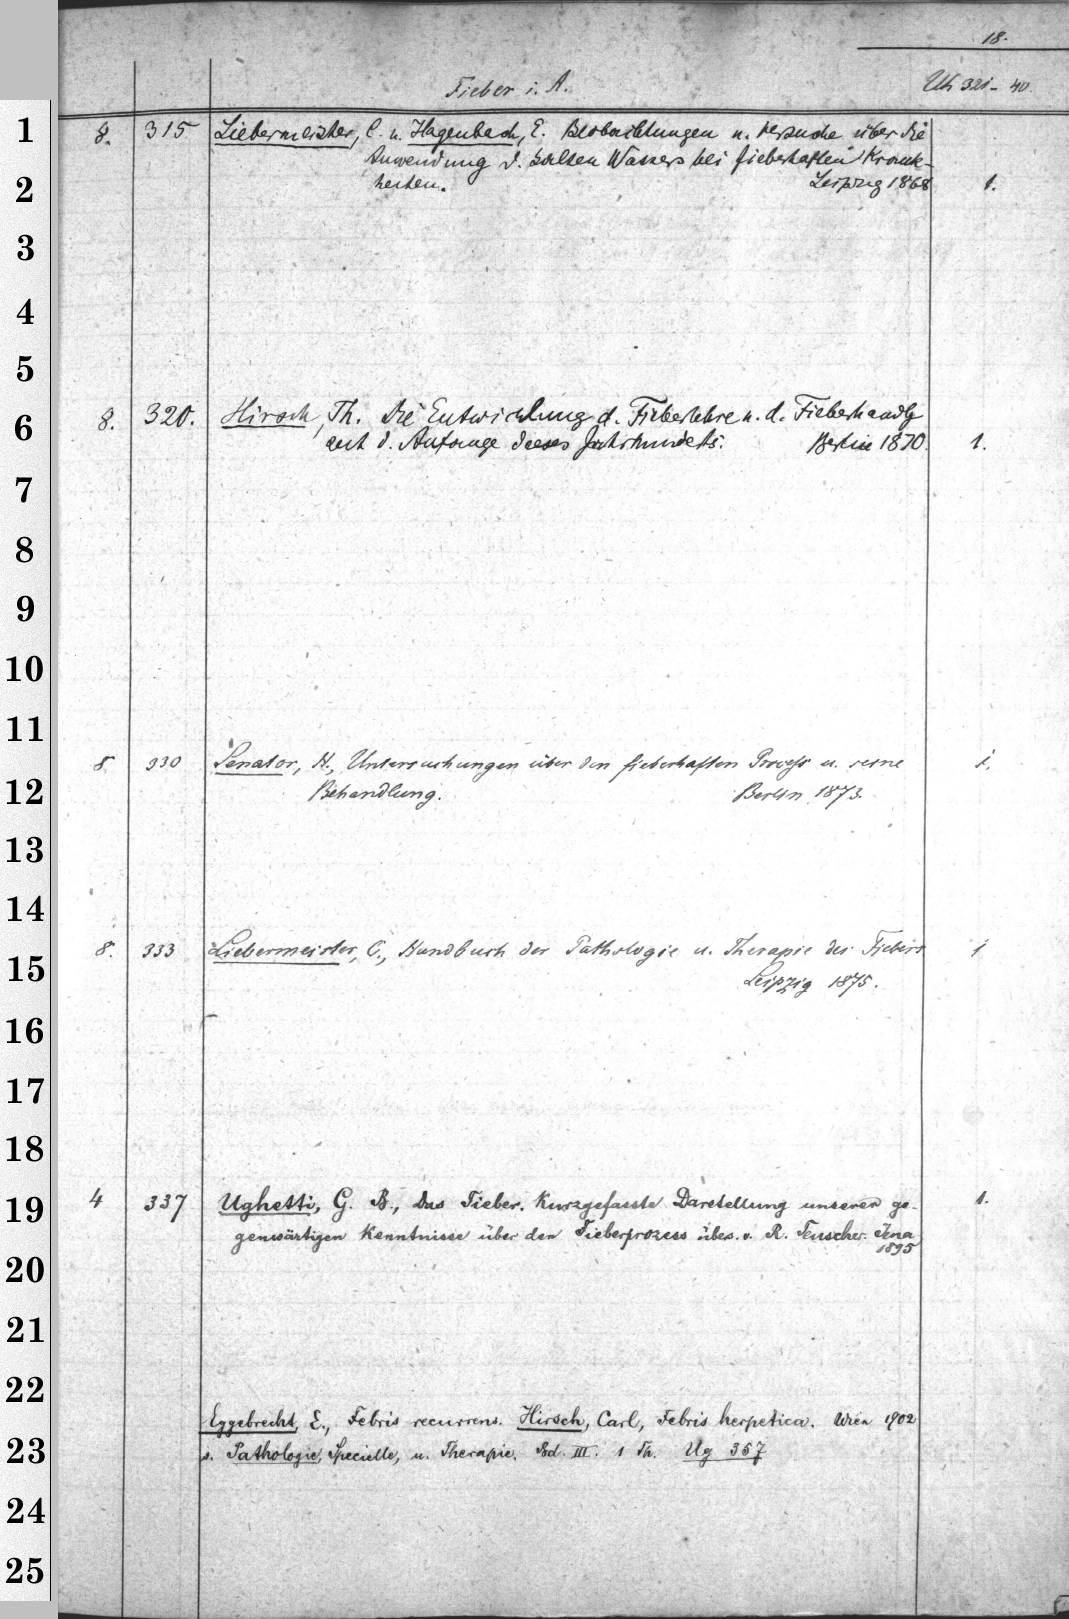 18.
Fieber i. A. Uh 321-40.
1 8. 315 Liebermeister, C. u. Hagenbach, E. Beobachtungen u. Versuche über die
Anwendung d. kalten Wassers bei fieberhaften Krank-
2 heiten. Leipzig 1868 1.
3
4
5
6 8. 320. Hirsch, Th. Die Entwicklung d. Fieberlehre u. d. Fieberhandlg
seit d. Anfange dieses Jahrhunderts. Berlin 1870. 1.
7
8
9
10
11
8 330 Senator, H., Untersuchungen über den fieberhaften Proceß u. seine 1.
12 Behandlung. Berlin 1873.
13
14
8. 333 Liebermeister, C., Handbuch der Pathologie u. Therapie des Fiebers 1
15 Leipzig 1875.
16
17
18
19 4 337 Ughetti, G. B., Das Fieber. Kurzgefasste Darstellung unserer ge- 1.
genwärtigen Kenntnisse über den Fieberprozess übes. v. R. Teuscher. Jena
1895
20
21
22
Eggebrecht, E., Febris recurrens. Hirsch, Carl, Febris herpetica. Wien 1902
23 s. Pathologie, Specielle, u. Therapie. Bd. III. 1 Th. Ug 357
24
25